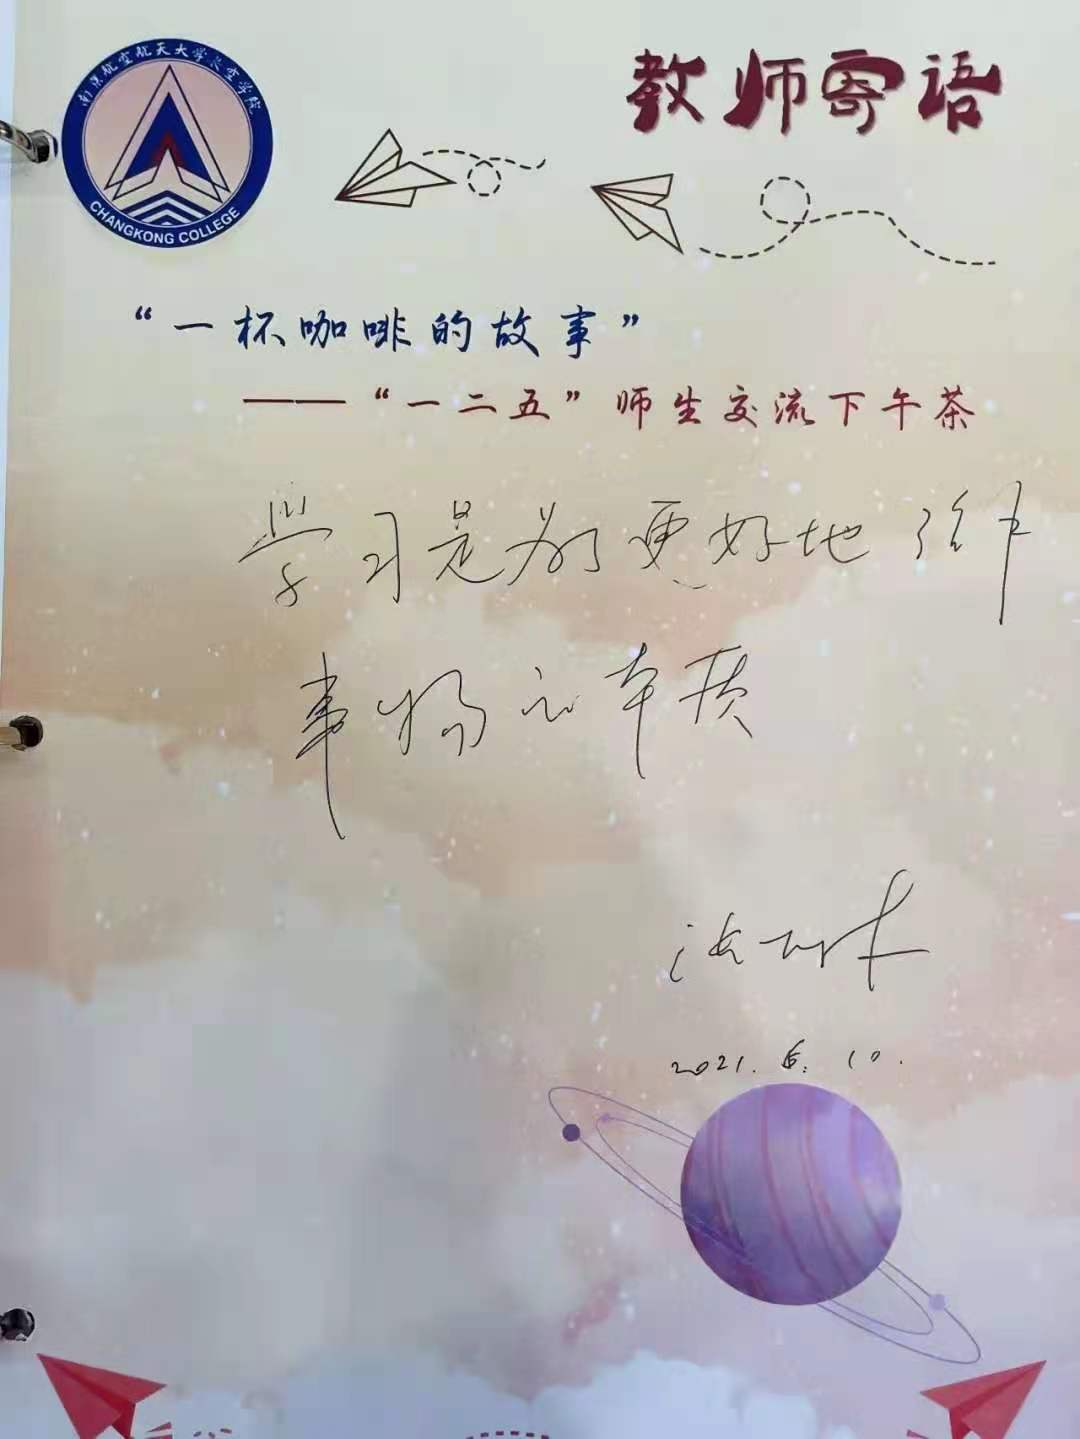 南京航空航天大学长空学院
CHANGKONG COLLEGE
教师寄语
“一杯咖啡的故事”
——“一二五”师生交流下午茶
学习是为了更好地
事物的本质
2021.6.10.